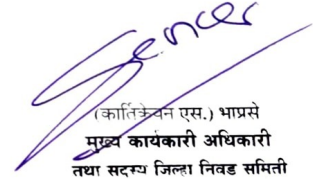 (कार्तिकेयन एस.) भाप्रसे
मुख्य कार्यकारी अधिकारी
तथा सदस्य जिल्हा निवड समिती